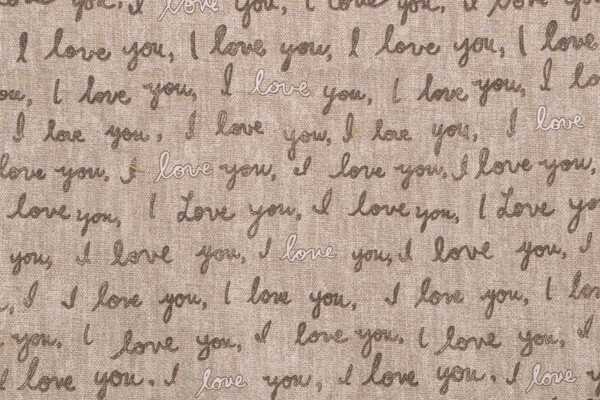 you, I love you, I love you, I love you
I love you, I love you, I love you, I love
you, I love you, I love you, I love you, I lo
I love you, I love you, I love you, I love
love you, I love you, I love you, I love you,
love you, I Love you, I love you, I Love yo
you, I love you, I love you, I love you, I
I I love you, I love you, I love you, I lov
you, I love you, I love you. I love you, I
I love you. I love you, I love you. I love y